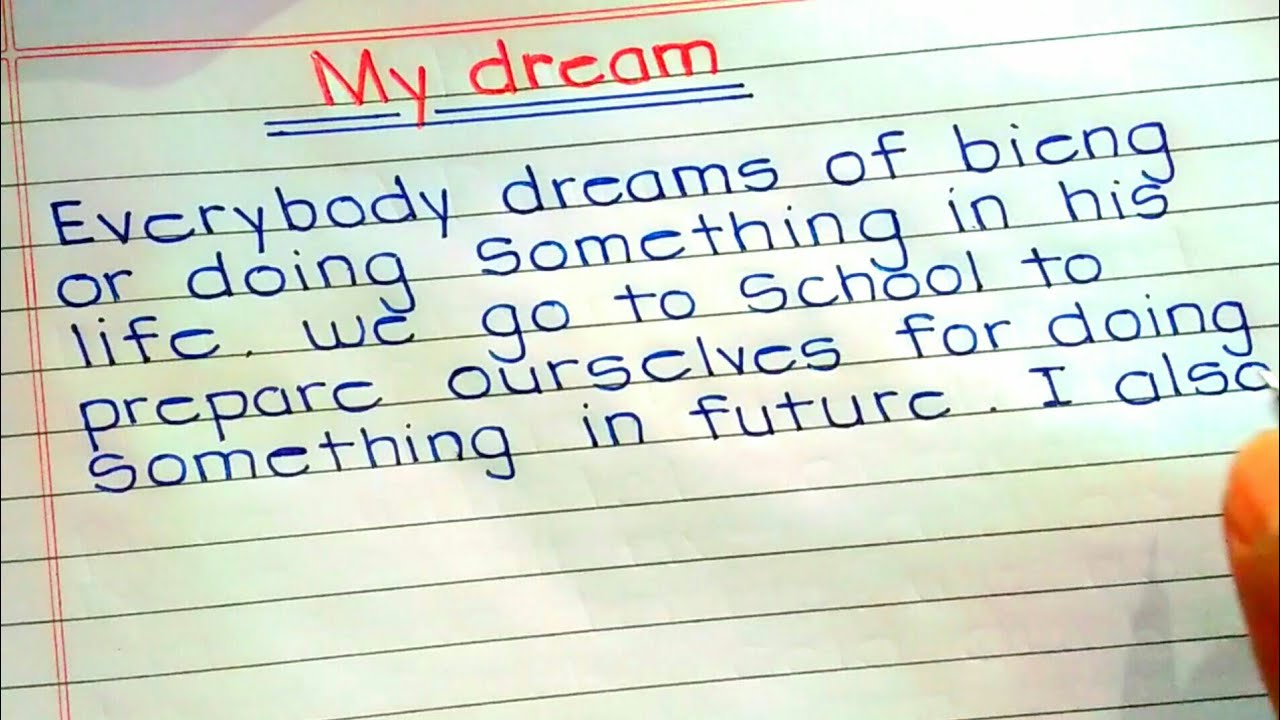 My dream
Everybody dreams of bieng
or doing something in his
life. we go to school to
prepare ourselves for doing
something in future. I also